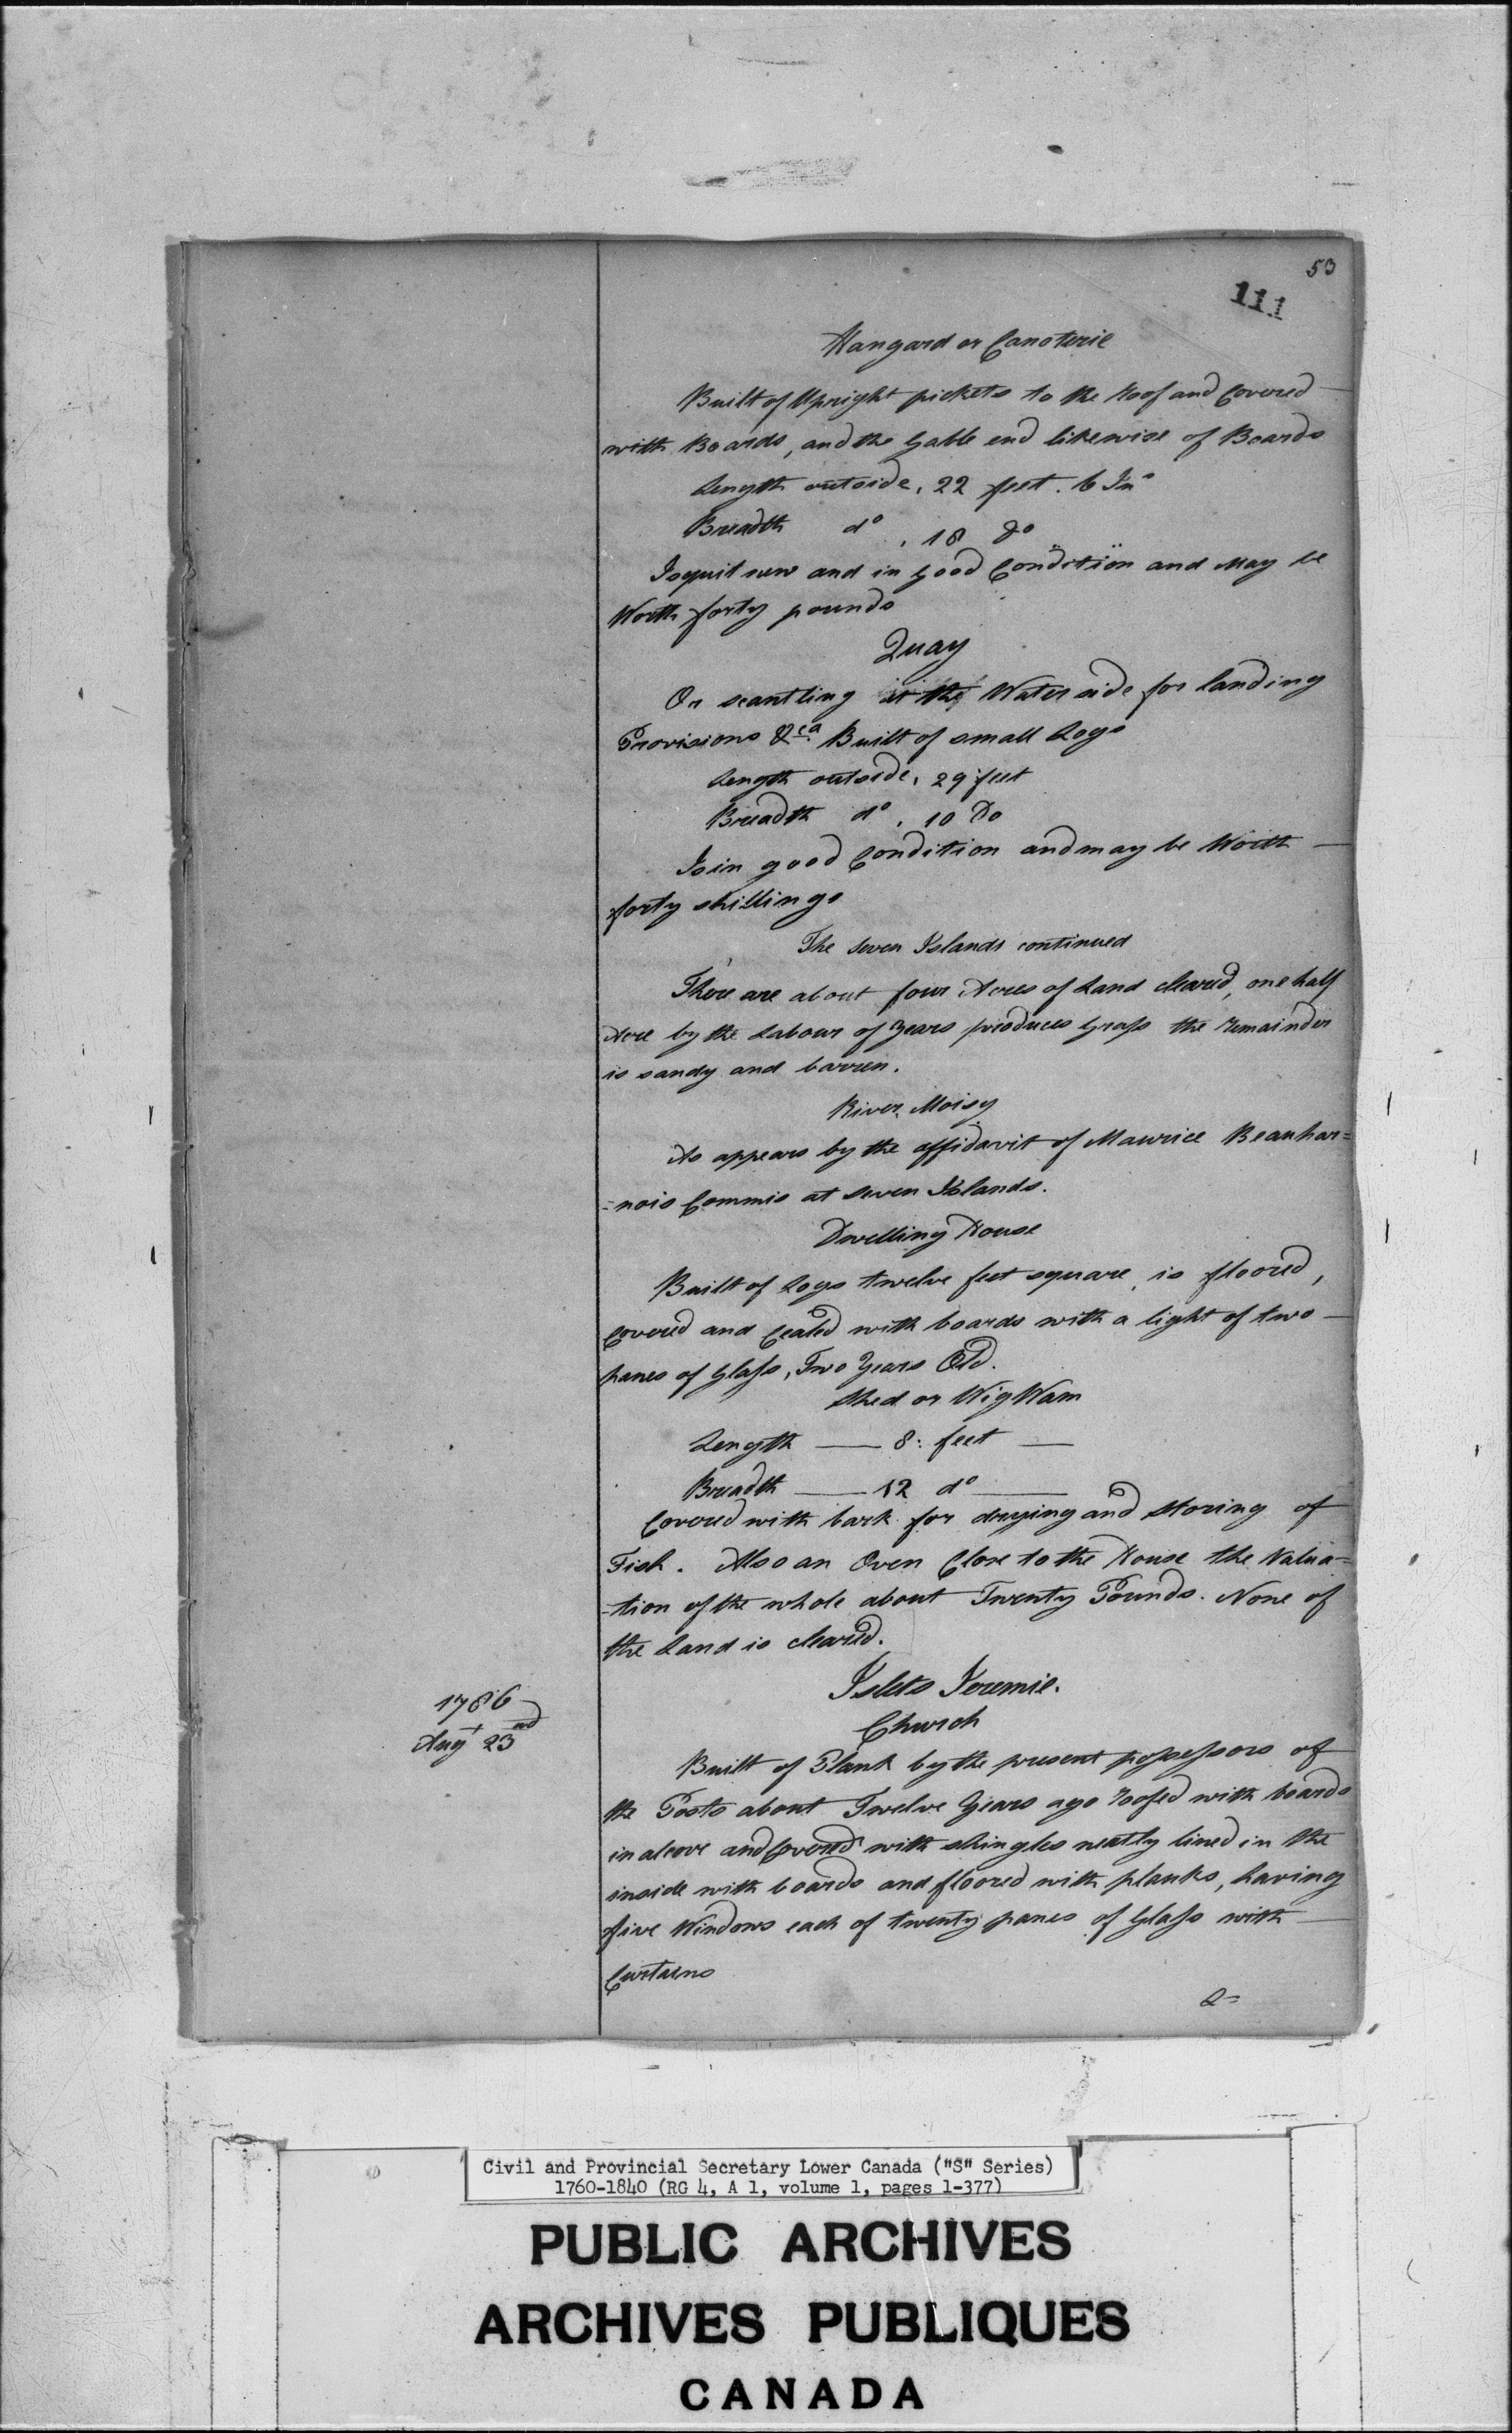 53
111
Hangard or Canoterie
Built of Upright pickets to the roof and Covered
with Boards, and the Gable end likewise of Boards
Length outside, 22 feet. 6 Inˢ
Breadth dº, 18 Dº
Is quit new and in good Condition and May be
Worth forty pounds
Quay
Or scantling at the Water side for landing
Provisions &ca Built of small Logs
Length outside, 29 feet
Breadth dº, 10 Do
Is in good Condition and may be Worth
forty shillings
The Seven Islands continued
There are about four Acres of Land cleared, one half
Acre by the Labour of Years produces Grass the remainder
is sandy and barren.
River Moisy
As appears by the affidavit of Maurice Beauhar=
=nois Commis at Seven Islands.
Dwelling House
Built of Logs twelve feet square, is floored,
Covered and Cealed with boards with a light of two
panes of Glass, Two Years Old.
Shed or WigWam
Length — 8: feet —
Breadth — 12 dº —
Covered with bark for drying and Storing of
Fish. Also an Oven Close to the House the Valua=
=tion of the whole about Twenty Pounds. None of
the Land is cleared.
Islets Jeremie.
Church
1786
Augt 23rd
Built of Plank by the present possessors of
the Posts about Twelve Years ago roofed with boards
in alcove and Covered with shingles neatly lined in the
inside with boards and floored with planks, having
five Windows each of twenty panes of Glass with
Curtains
Civil and Provincial Secretary Lower Canada ("S" Series)
1760-1840 (RG 4, A 1, volume 1, pages 1-377)
PUBLIC ARCHIVES
ARCHIVES PUBLIQUES
CANADA